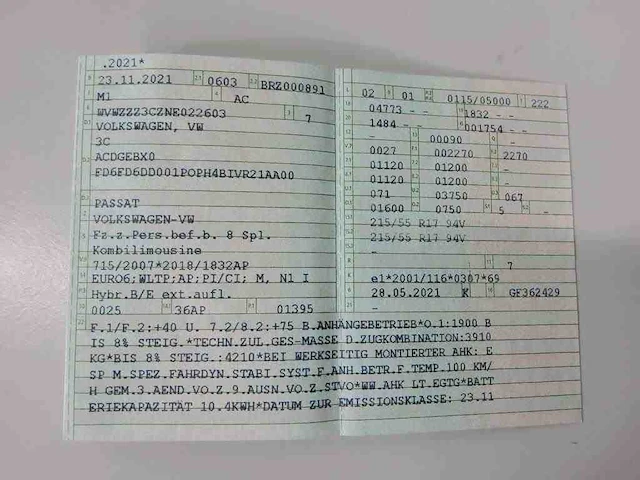 .2021*
23.11.2021 0603 BRZ000891
M1 AC
WVWZZZ3CZNE022603 7
VOLKSWAGEN, VW
3C
ACDGEBX0
FD6FD6DD001POPH4BIVR21AA00
PASSAT
VOLKSWAGEN-VW
Fz.z.Pers.bef.b. 8 Spl.
Kombilimousine
715/2007*2018/1832AP
EURO6;WLTP;AP;PI/CI; M, N1 I
Hybr.B/E ext.aufl.
0025 36AP 01395
02 01 0115/05000 222
04773 - - 1832 - -
1484 - - 001754 - -
- 00090 -
0027 002270 2270
01120 01200 -
01120 01200 -
071 03750 067
01600 0750 5 -
215/55 R17 94V
215/55 R17 94V
-
- 7
e1*2001/116*0307*69
28.05.2021 K GF362429
-
F.1/F.2:+40 U. 7.2/8.2:+75 B.ANHÄNGEBETRIEB*O.1:1900 B
IS 8% STEIG.*TECHN.ZUL.GES-MASSE D.ZUGKOMBINATION:3910
KG*BIS 8% STEIG.:4210*BEI WERKSEITIG MONTIERTER AHK: E
SP M.SPEZ.FAHRDYN.STABI.SYST.F.ANH.BETR.F.TEMP.100 KM/
H GEM.3.AEND.VO.Z.9.AUSN.VO.Z.STVO*WW.AHK LT.EGTG*BATT
ERIEKAPAZITÄT 10.4KWH*DATUM ZUR EMISSIONSKLASSE: 23.11